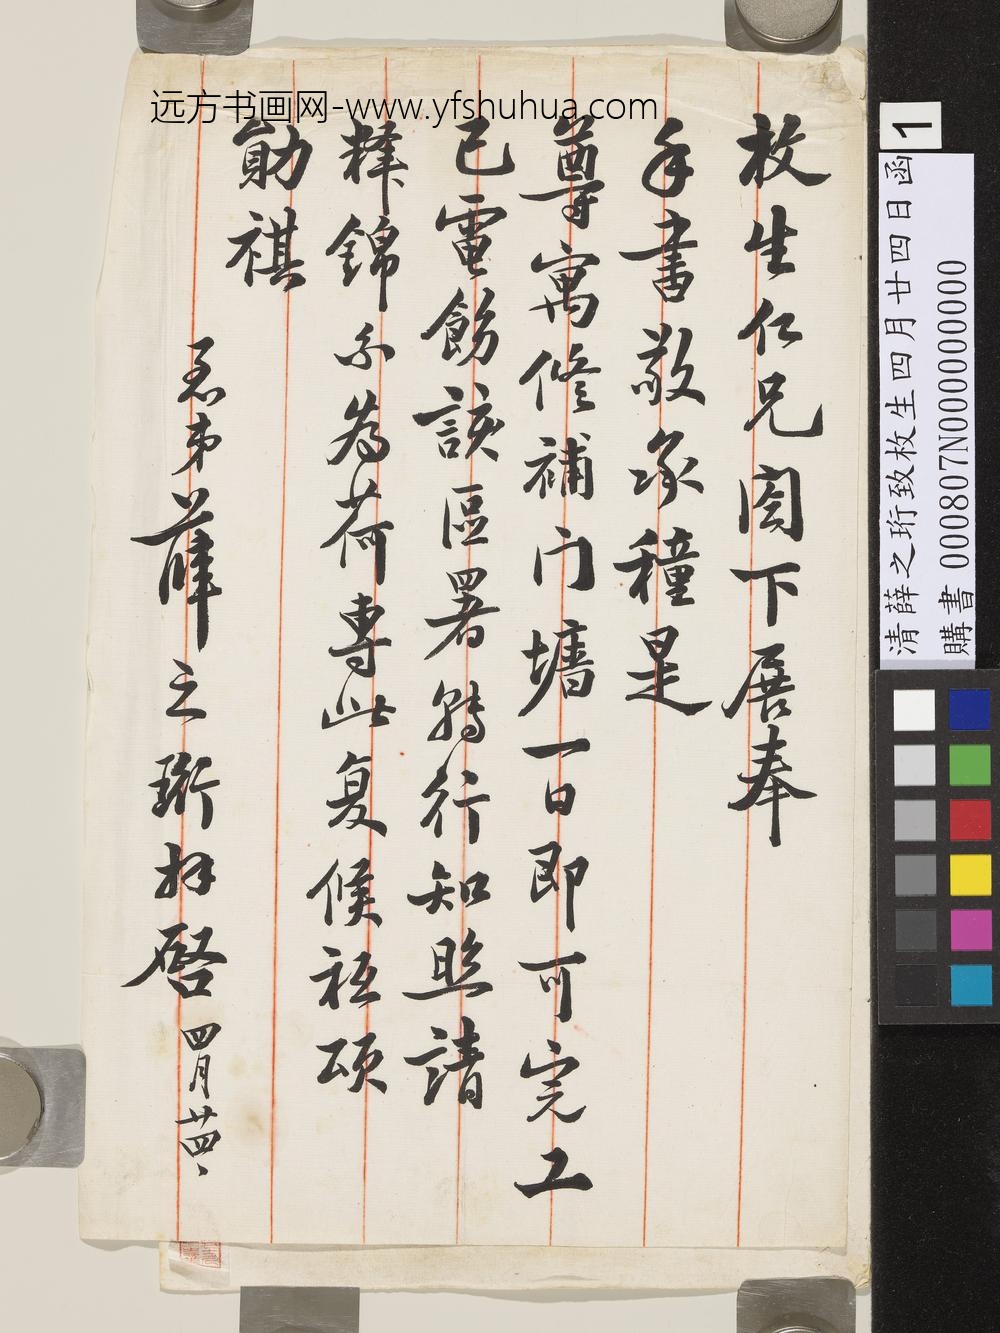 远方书画网-www.yfshuhua.com
枚生仁兄閣下展奉
手書敬承種是
尊寓修補门墻一日即可完工
已電飭該區署轉行知照請
釋錦為荷專此复候祗頌
勛祺
愚弟薛之珩拜啓 四月廿四
1
清薛之珩致枚生四月廿四日函
購書 000807N000000000